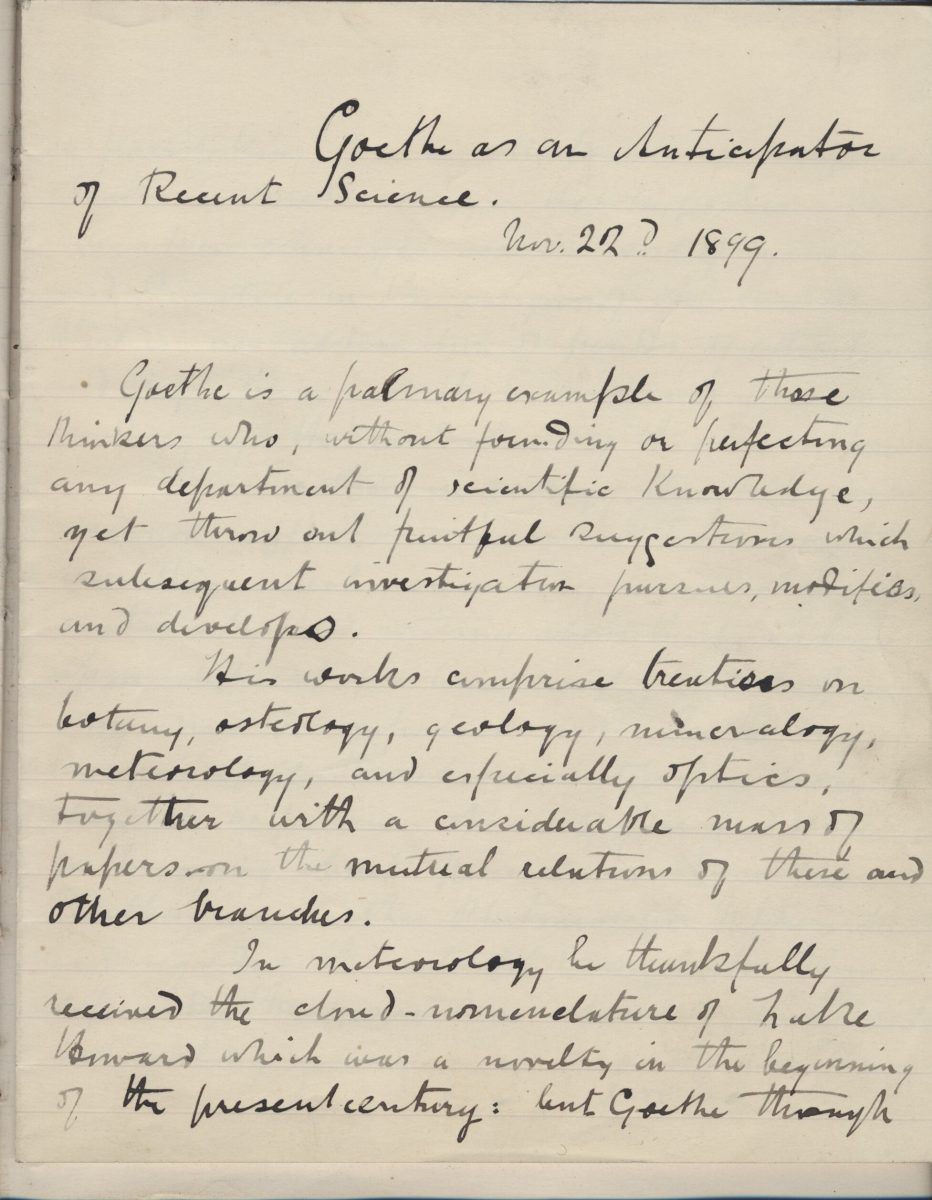 Goethe as an Anticipator
of Recent Science.
Nov. 22d 1899.
Goethe is a palmary example of those
thinkers who, without founding or perfecting
any department of scientific Knowledge,
yet throw out fruitful suggestions which
subsequent investigation pursues, modifies,
and develops.
His works comprise treatises on
botany, osteology, geology, mineralogy,
meteorology, and especially optics,
together with a considerable mass of
papers on the mutual relations of these and
other branches.
In meteorology he thankfully
received the cloud-nomenclature of Luke
Howard which was a novelty in the beginning
of the present century: but Goethe though